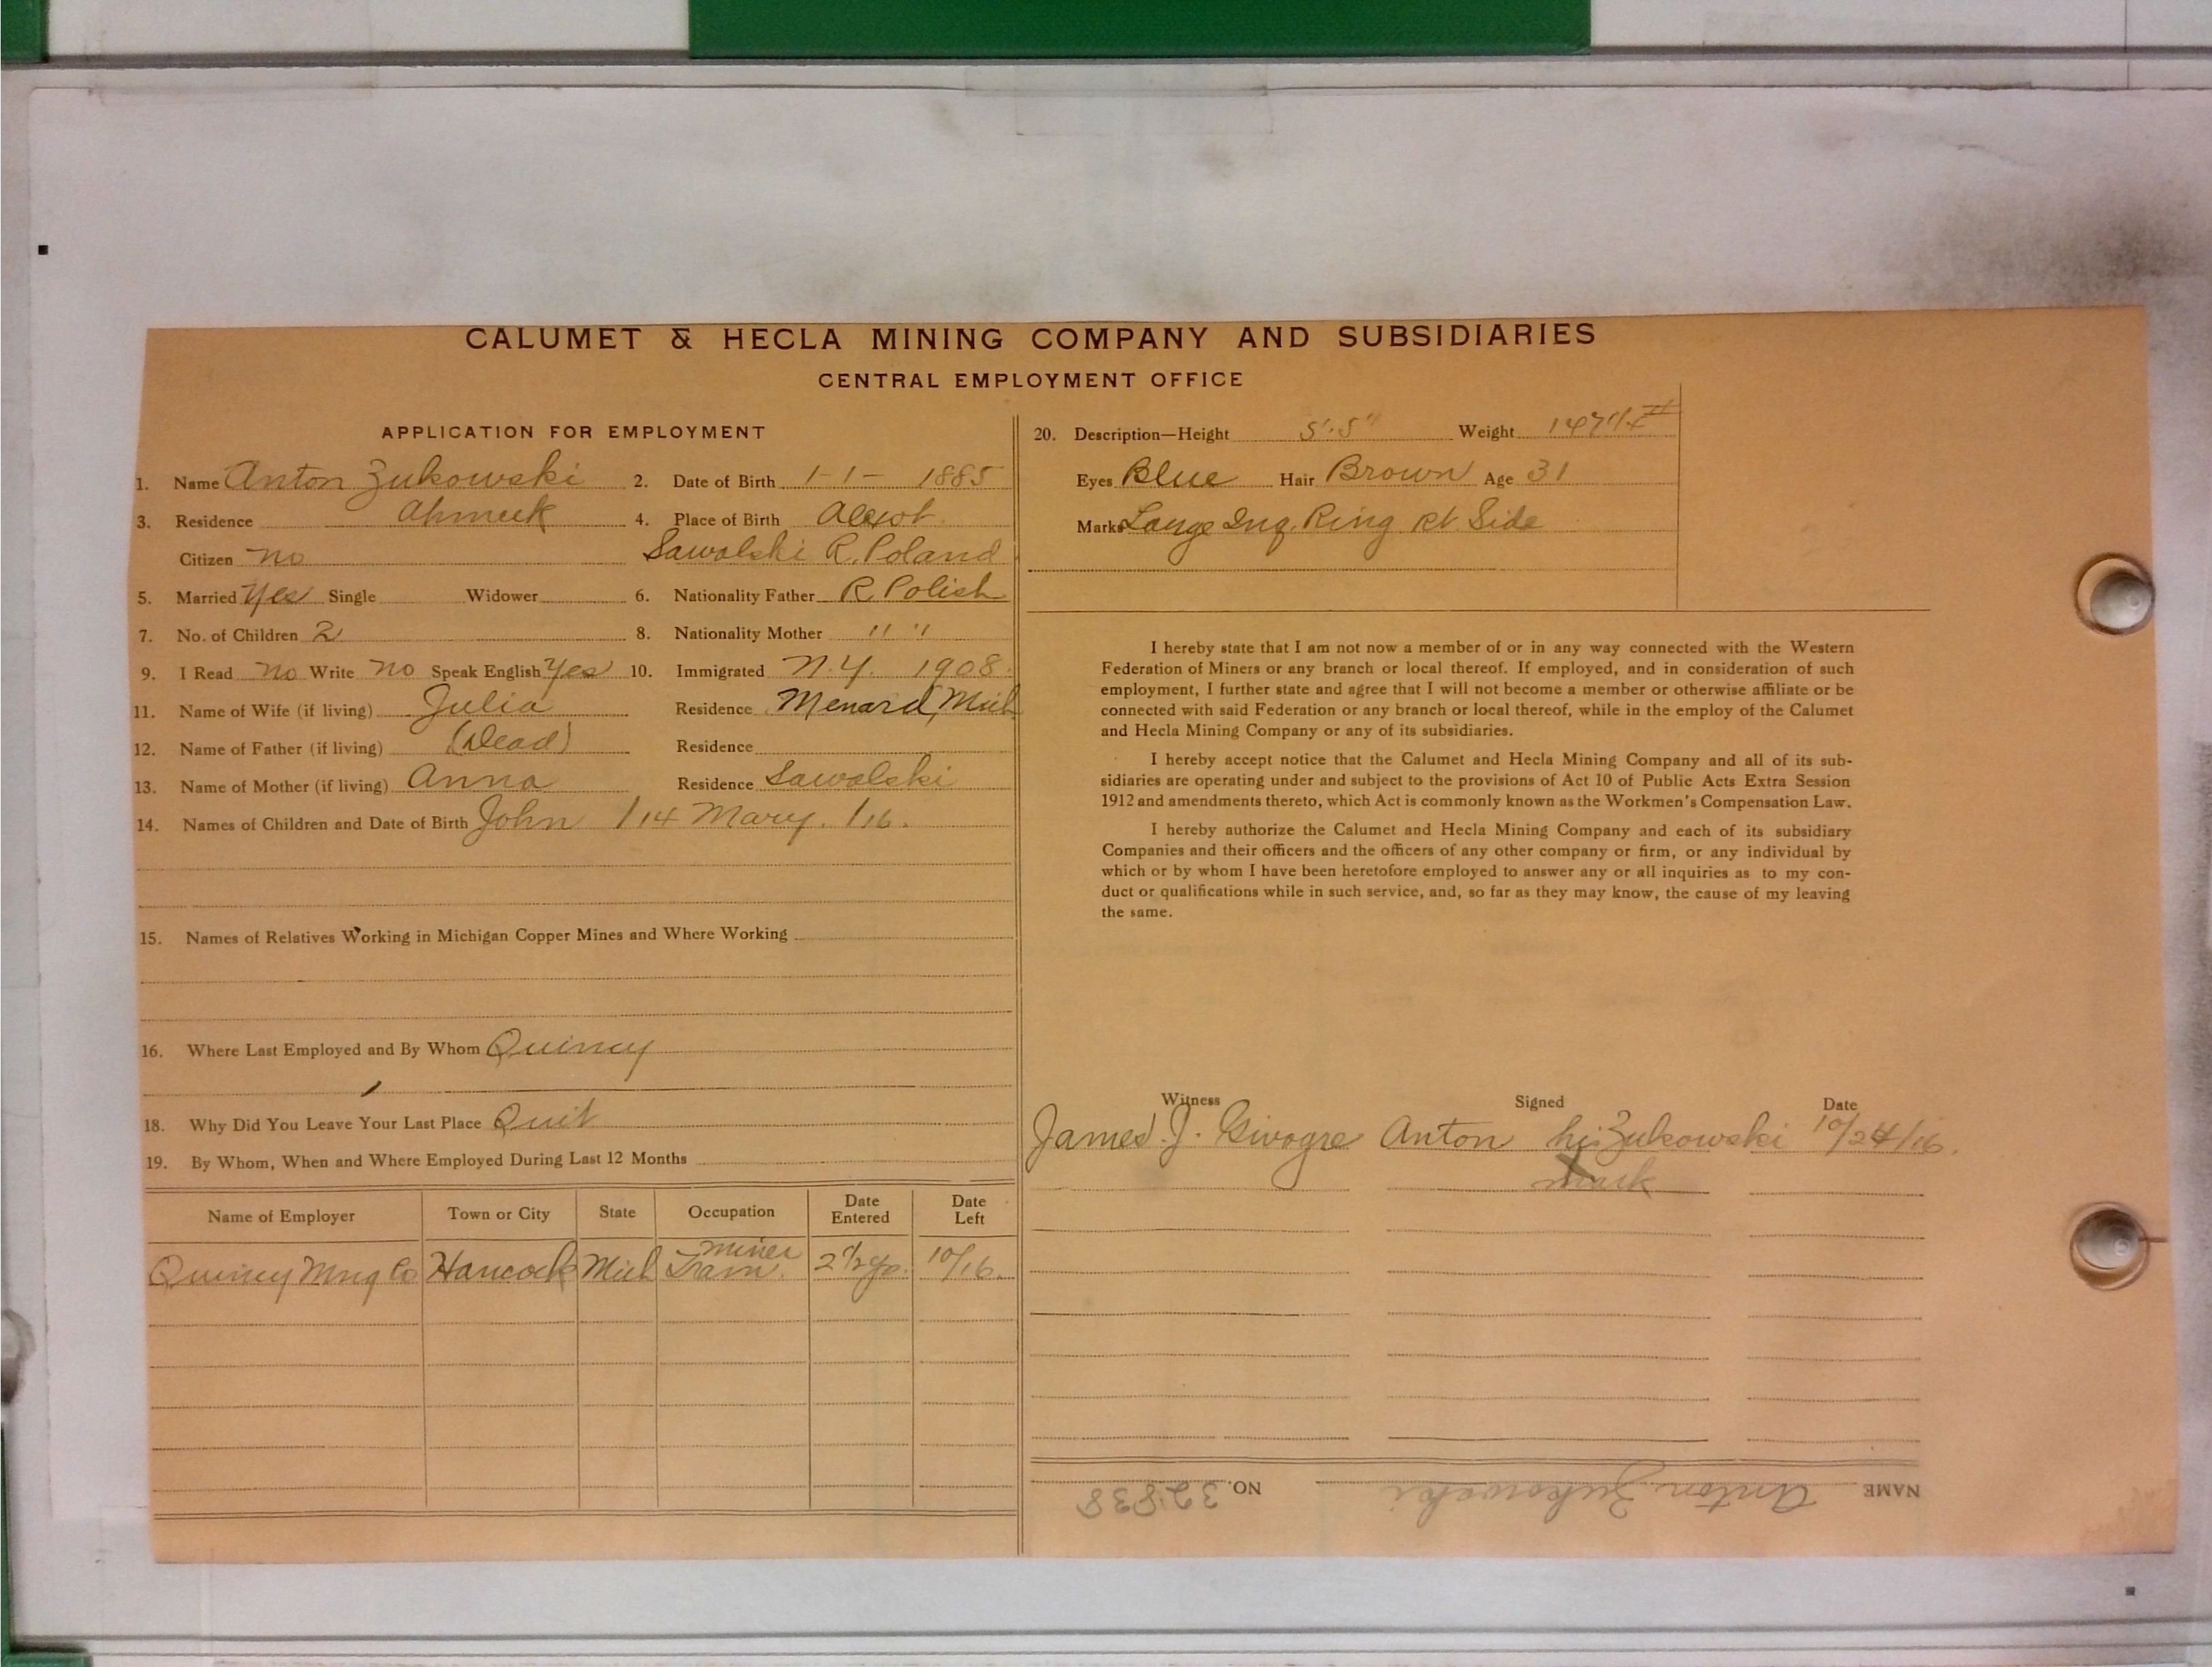 CALUMET & HECLA MINING COMPANY AND SUBSIDIARIES
CENTRAL EMPLOYMENT OFFICE
APPLICATION FOR EMPLOYMENT
1. Name Anton Zukowski 2. Date of Birth 1-1- 1885
3. Residence Ahmeek 4. Place of Birth
Citizen no Sawolski R. Poland
5. Married Yes Single Widower 6. Nationality Father R. Polish
7. No. of Children 2 8. Nationality Mother " "
9. I Read no Write no Speak English Yes 10. Immigrated N.Y. 1908.
11. Name of Wife (if living) Julia Residence Menard, Mich
12. Name of Father (if living) (Dead) Residence
13. Name of Mother (if living) Anna Residence Sawolski
14. Names of Children and Date of Birth John 1/14 Mary. 1/16.
15. Names of Relatives Working in Michigan Copper Mines and Where Working
16. Where Last Employed and By Whom Quincy
18. Why Did You Leave Your Last Place Quit
19. By Whom, When and Where Employed During Last 12 Months
Name of Employer Town or City State Occupation Date Entered Date Left
Quincy Mng Co Hancock Mich Miner Tram. 2 1/2 yrs. 10/16.
20. Description—Height 5'.5" Weight 147 1/4 #
Eyes Blue Hair Brown Age 31
Marks Large Ing. Ring Rt. Side
I hereby state that I am not now a member of or in any way connected with the Western
Federation of Miners or any branch or local thereof. If employed, and in consideration of such
employment, I further state and agree that I will not become a member or otherwise affiliate or be
connected with said Federation or any branch or local thereof, while in the employ of the Calumet
and Hecla Mining Company or any of its subsidiaries.
I hereby accept notice that the Calumet and Hecla Mining Company and all of its sub-
sidiaries are operating under and subject to the provisions of Act 10 of Public Acts Extra Session
1912 and amendments thereto, which Act is commonly known as the Workmen's Compensation Law.
I hereby authorize the Calumet and Hecla Mining Company and each of its subsidiary
Companies and their officers and the officers of any other company or firm, or any individual by
which or by whom I have been heretofore employed to answer any or all inquiries as to my con-
duct or qualifications while in such service, and, so far as they may know, the cause of my leaving
the same.
Witness Signed Date
James J. Anton his Zukowski 10/24/16.
X
mark
NAME Anton Zukowski NO. 32838